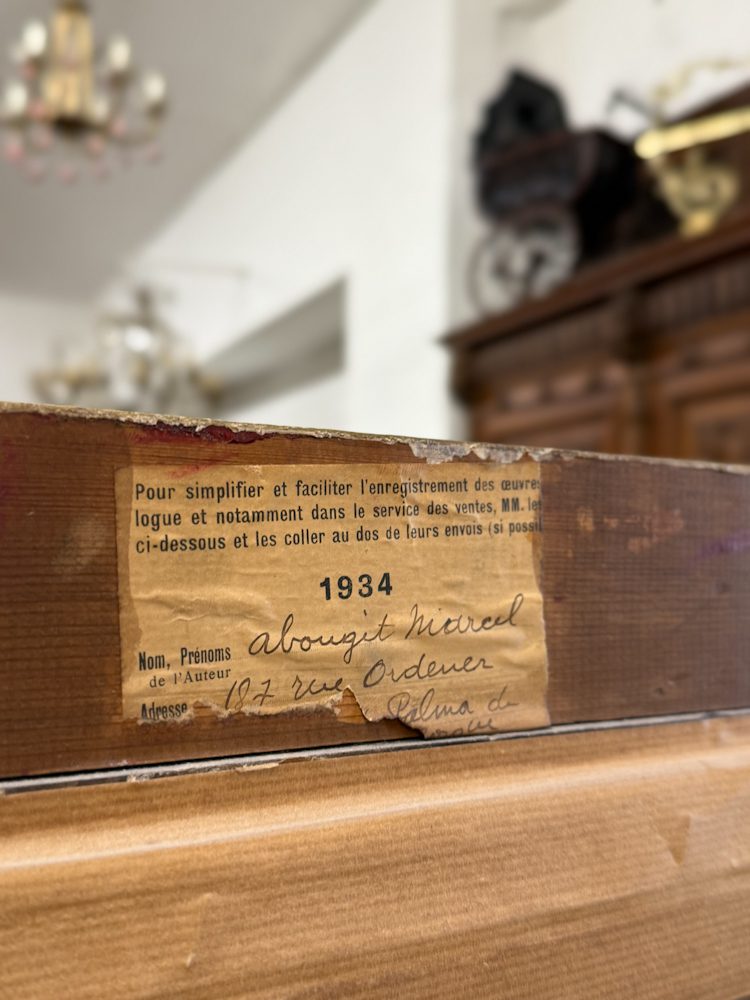 Pour simplifier et faciliter l'enregistrement des œuvres
logue et notamment dans le service des ventes, MM. les
ci-dessous et les coller au dos de leurs envois (si possi
1934
Nom, Prénoms abougit Marcel
de l'Auteur
Adresse 187 rue Ordener
Palma de